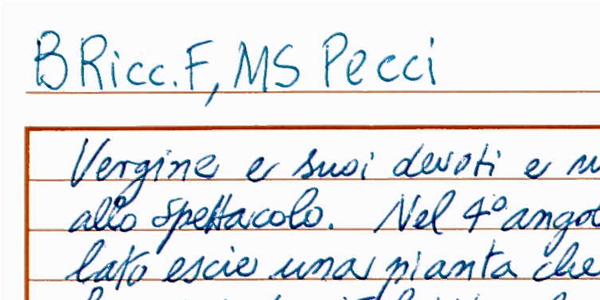 B Ricc. F, MS Pecci
Vergine e suoi devoti e
allo spettacolo. Nel 4° angol
lato escie una pianta che